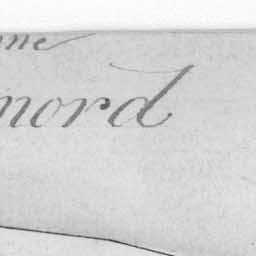 me
nord